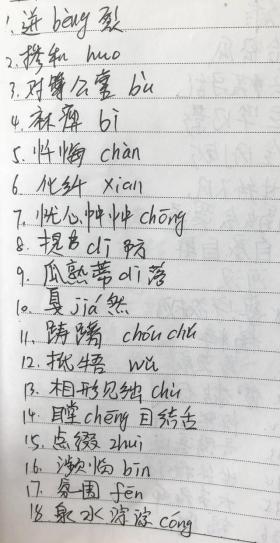 1. 迸 bèng 裂
2. 搀和 huo
3. 对簿公堂 bù
4. 麻痹 bì
5. 忏悔 chàn
6. 化纤 xian
7. 忧心忡忡 chōng
8. 提 dī 防
9. 瓜熟蒂 dì 落
10. 戛 jiá 然
11. 踌躇 chóu chú
12. 抵牾 wǔ
13. 相形见绌 chù
14. 瞠 chēng 目结舌
15. 点缀 zhuì
16. 濒临 bīn
17. 氛围 fēn
18. 泉水淙淙 cóng